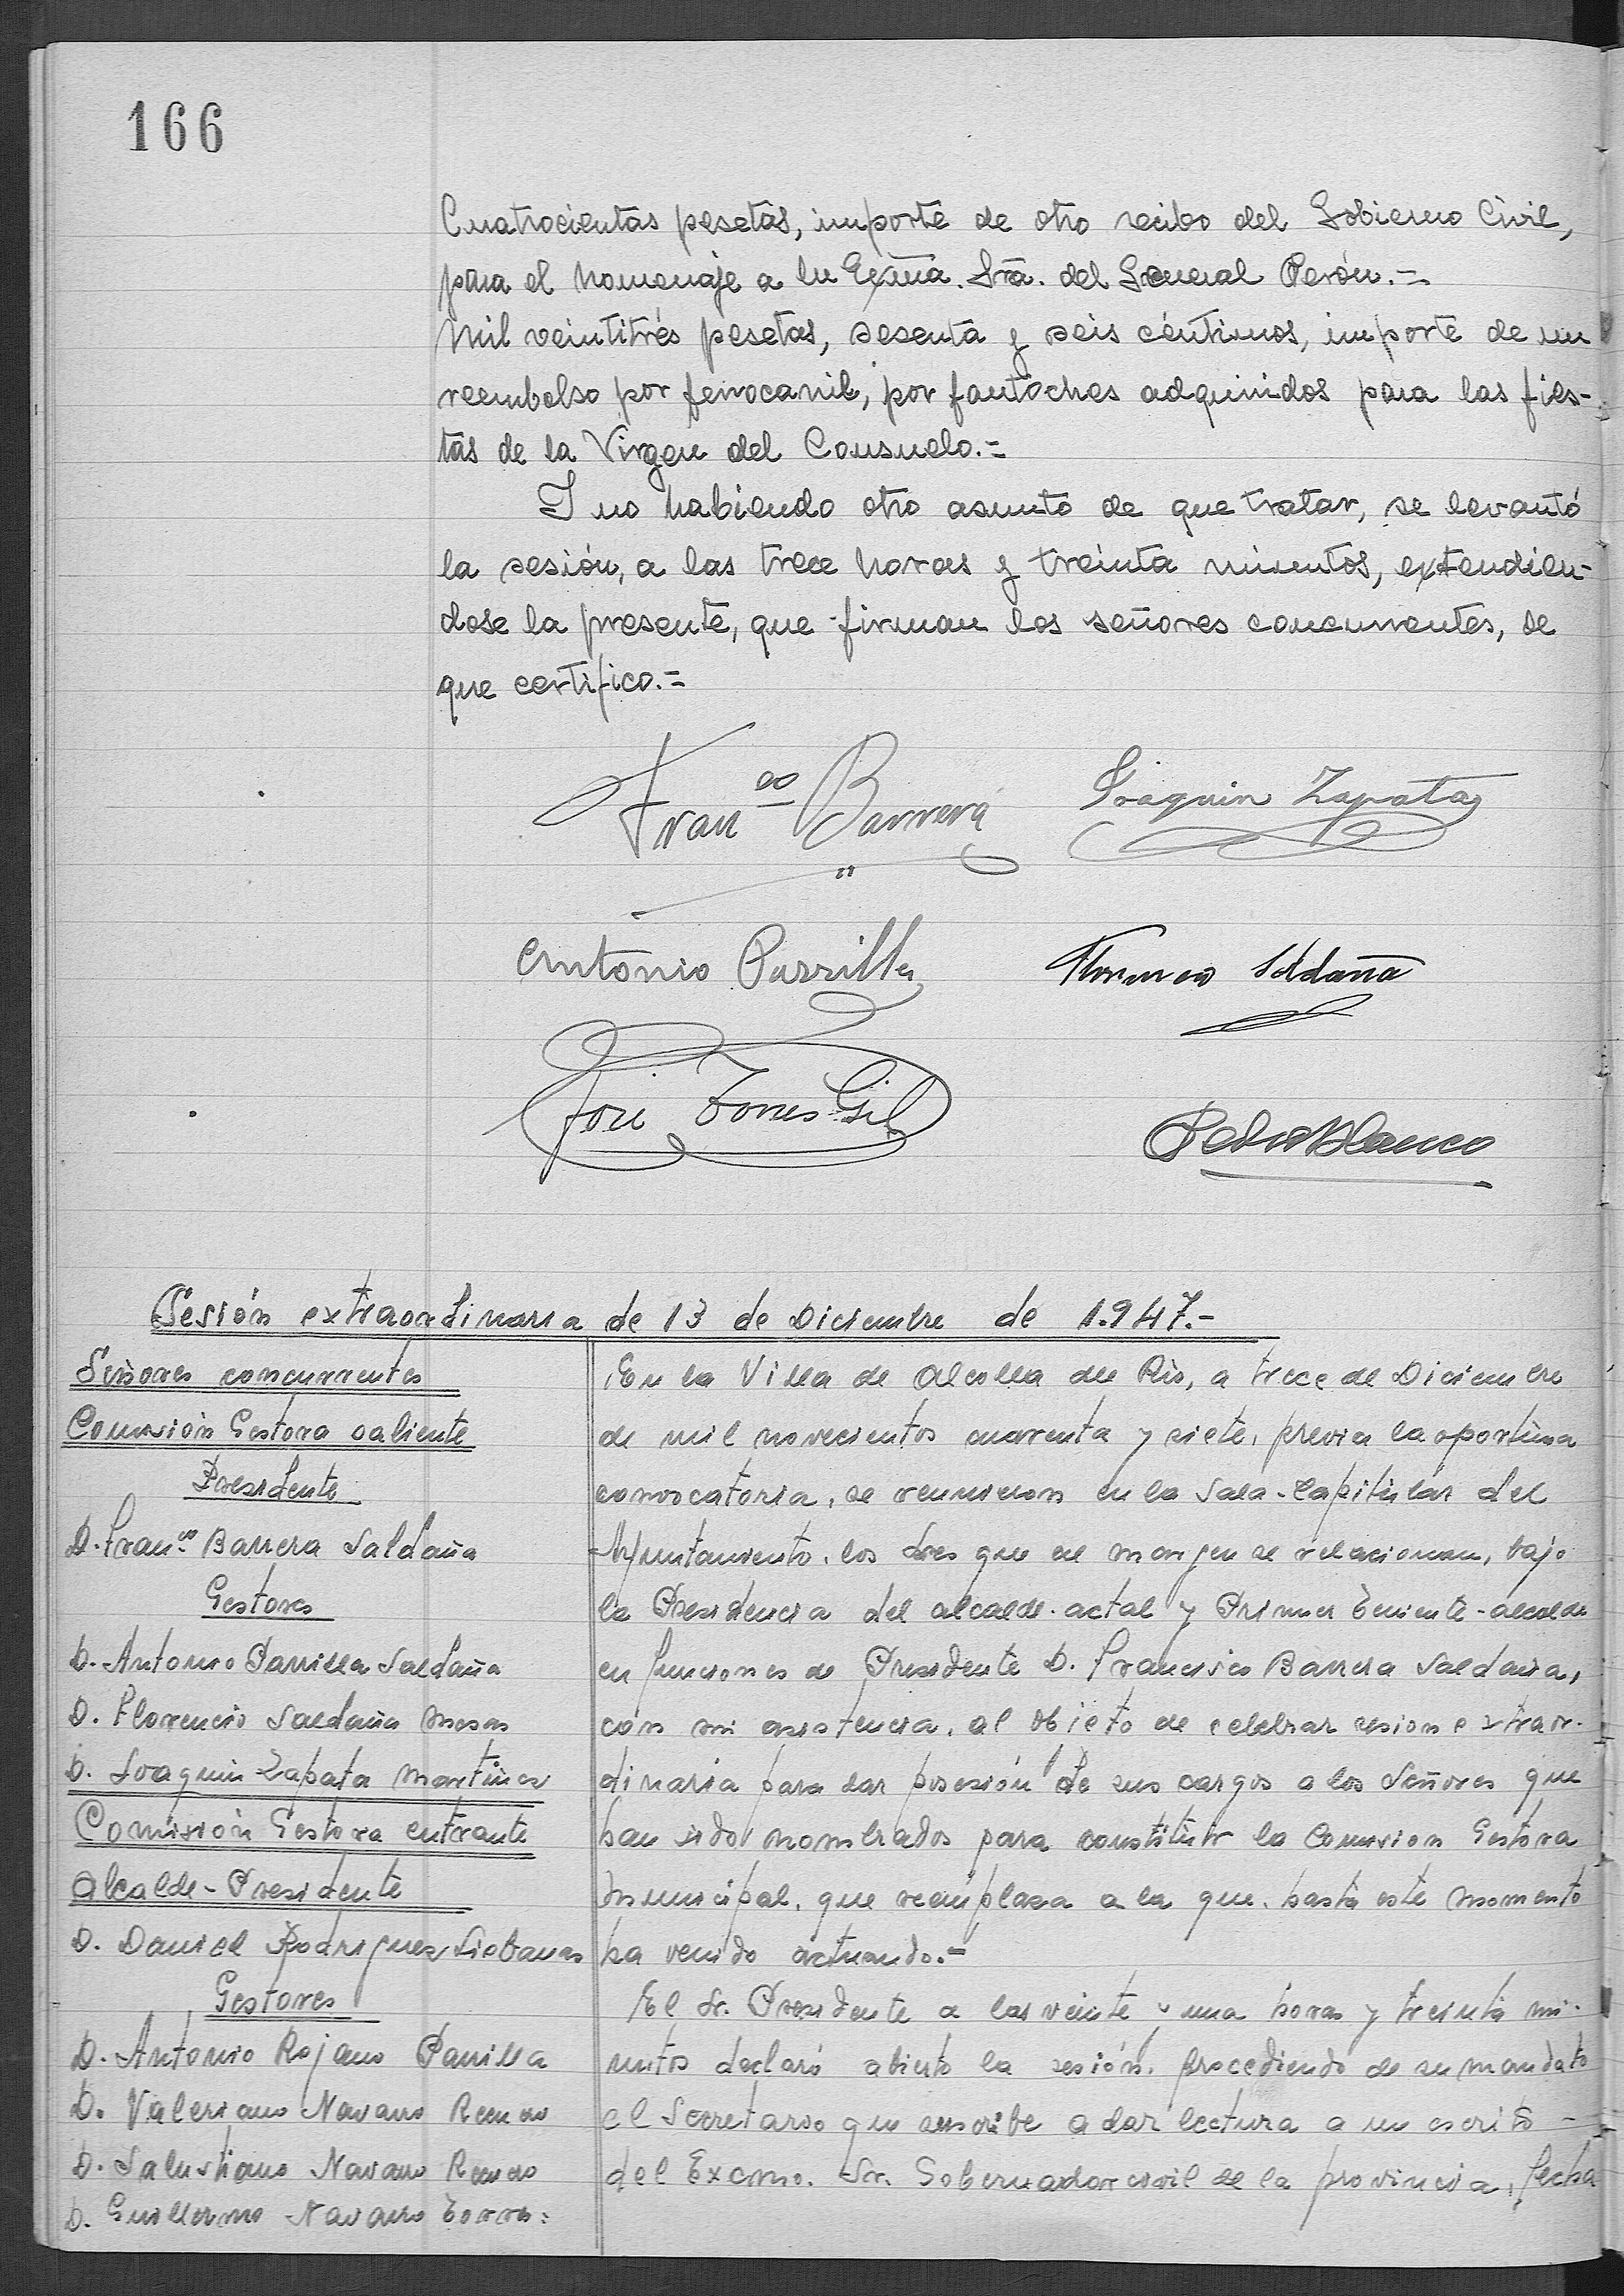 166
Cuatrocientas pesetas, importe de otro recibo del Gobierno Civil,
para el homenaje a la Exma. Sra. del General Perón.=
Mil veintitrés pesetas, sesenta y seis céntimos, importe de un
reembolso por ferrocarril, por fantoches adquiridos para las fies-
tas de la Virgen del Consuelo.=
Y no habiendo otro asunto de que tratar, se levantó
la sesión, a las trece horas y treinta minutos, extendién-
dose la presente, que firman los señores concurrentes, de
que certifico.=
Franco Barrera Joaquin Zapata
Antonio Parrilla Florencio Saldaña
José Torres Gil
Pedro Blanco
Sesión extraordinaria de 13 de Diciembre de 1.947.-
Señores concurrentes
Comisión Gestora saliente
Presidente
D. Franco Barrera Saldaña
Gestores
D. Antonio Parrilla Saldaña
D. Florencio Saldaña Mesas
D. Joaquin Zapata Martinez
Comisión Gestora entrante
Alcalde-Presidente
D. Daniel Rodriguez Liebanas
Gestores
D. Antonio Rojano Parrilla
D. Valeriano Navarro
D. Salustiano Navarro
D. Guillermo Navarro Torres=
En la Villa de Alcolea del Río, a trece de Diciembre
de mil novecientos cuarenta y siete, previa la oportuna
convocatoria, se reunieron en la Sala-Capitular del
Ayuntamiento, los Sres que al margen se relacionan, bajo
la Presidencia del alcalde-actal y Primer Teniente-alcalde
en funciones de Presidente D. Francisco Barrera Saldaña,
con mi asistencia, al objeto de celebrar sesion extraor-
dinaria para dar posesión de sus cargos a los Señores que
han sido nombrados para constituir la Comision Gestora
Municipal, que reemplaza a la que, hasta este momento
ha venido actuando.=
El Sr. Presidente a las veinte y una horas y treinta mi-
nutos declaró abierto la sesión, procediendo de su mandato
el Secretario que suscribe a dar lectura a un escrito -
del Excmo. Sr. Gobernador civil de la provincia, fecha